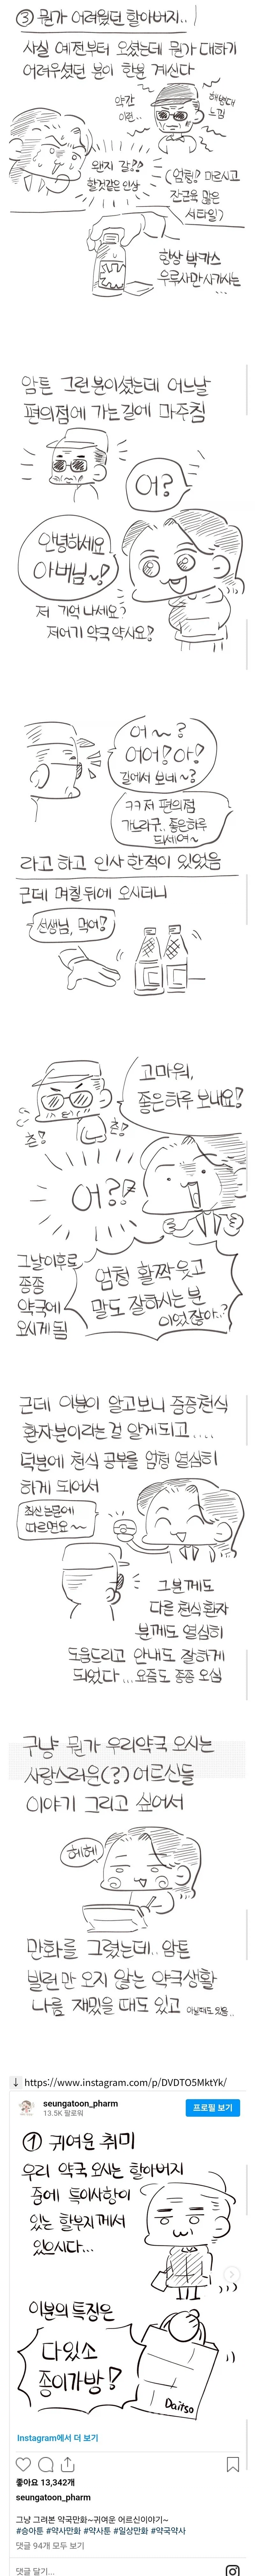 ③ 뭔가 어려웠던 할아버지..
사실 예전부터 오셨는데 뭔가 대하기
어려우셨던 분이 한분 계신다
약간
이런..
해병대
느낌
왠지 갈??
할것같은 인상
(엄청 마르시고
잔근육 많은
서타일)
항상 박카스
우루사만 사가시는
...
암튼 그런분이셨는데 어느날
편의점에 가는길에 마주침
어?
안녕하세요
아버님~!
저 기억 나세요?
저여기 약국 약사요!
어~?
어어! 아!
길에서 보네~?
ㅋㅋ저 편의점
가느라구.. 좋은하루
되세여~
라고 하고 인사 한적이 있었음
근데 며칠뒤에 오시더니
선생님, 먹어!
고마워,
좋은하루 보내요!
츤!
츤!
어?!
그날이후로
종종
약국에
오시게 됨
엄청 활짝 웃고
말도 잘하시는 분
이었잖아..?
근데 이분이 알고보니 중증천식
환자분이라는걸 알게되고....
덕분에 천식 공부를 엄청 열심히
하게 되어서
최신논문에
따르면요~~
그분께도
다른 천식환자
분께도 열심히
도움드리고 안내도 잘하게
되었다... 요즘도 종종 오심
구냥 뭔가 우리약국 오시는
사랑스러운(?) 어르신들
이야기 그리고 싶어서
헤헤
만화를 그렸는데.. 암튼
빌런만 오지 않는 약국생활
나름 재밌을 때도 있고 아닐때도 있음..
↓ https://www.instagram.com/p/DVDTO5MktYk/
seungatoon_pharm
13.5K 팔로워
프로필 보기
① 귀여운 취미
우리 약국 오시는 할아버지
중에 특이사항이
있는 할부지께서
있으시다...
이분의 특징은
다있소
종이가방!
Daitso
Instagram에서 더 보기
좋아요 13,342개
seungatoon_pharm
그냥 그려본 약국만화~귀여운 어르신이야기~
#승아툰 #약사만화 #약사툰 #일상만화 #약국약사
댓글 94개 모두 보기
댓글 달기...